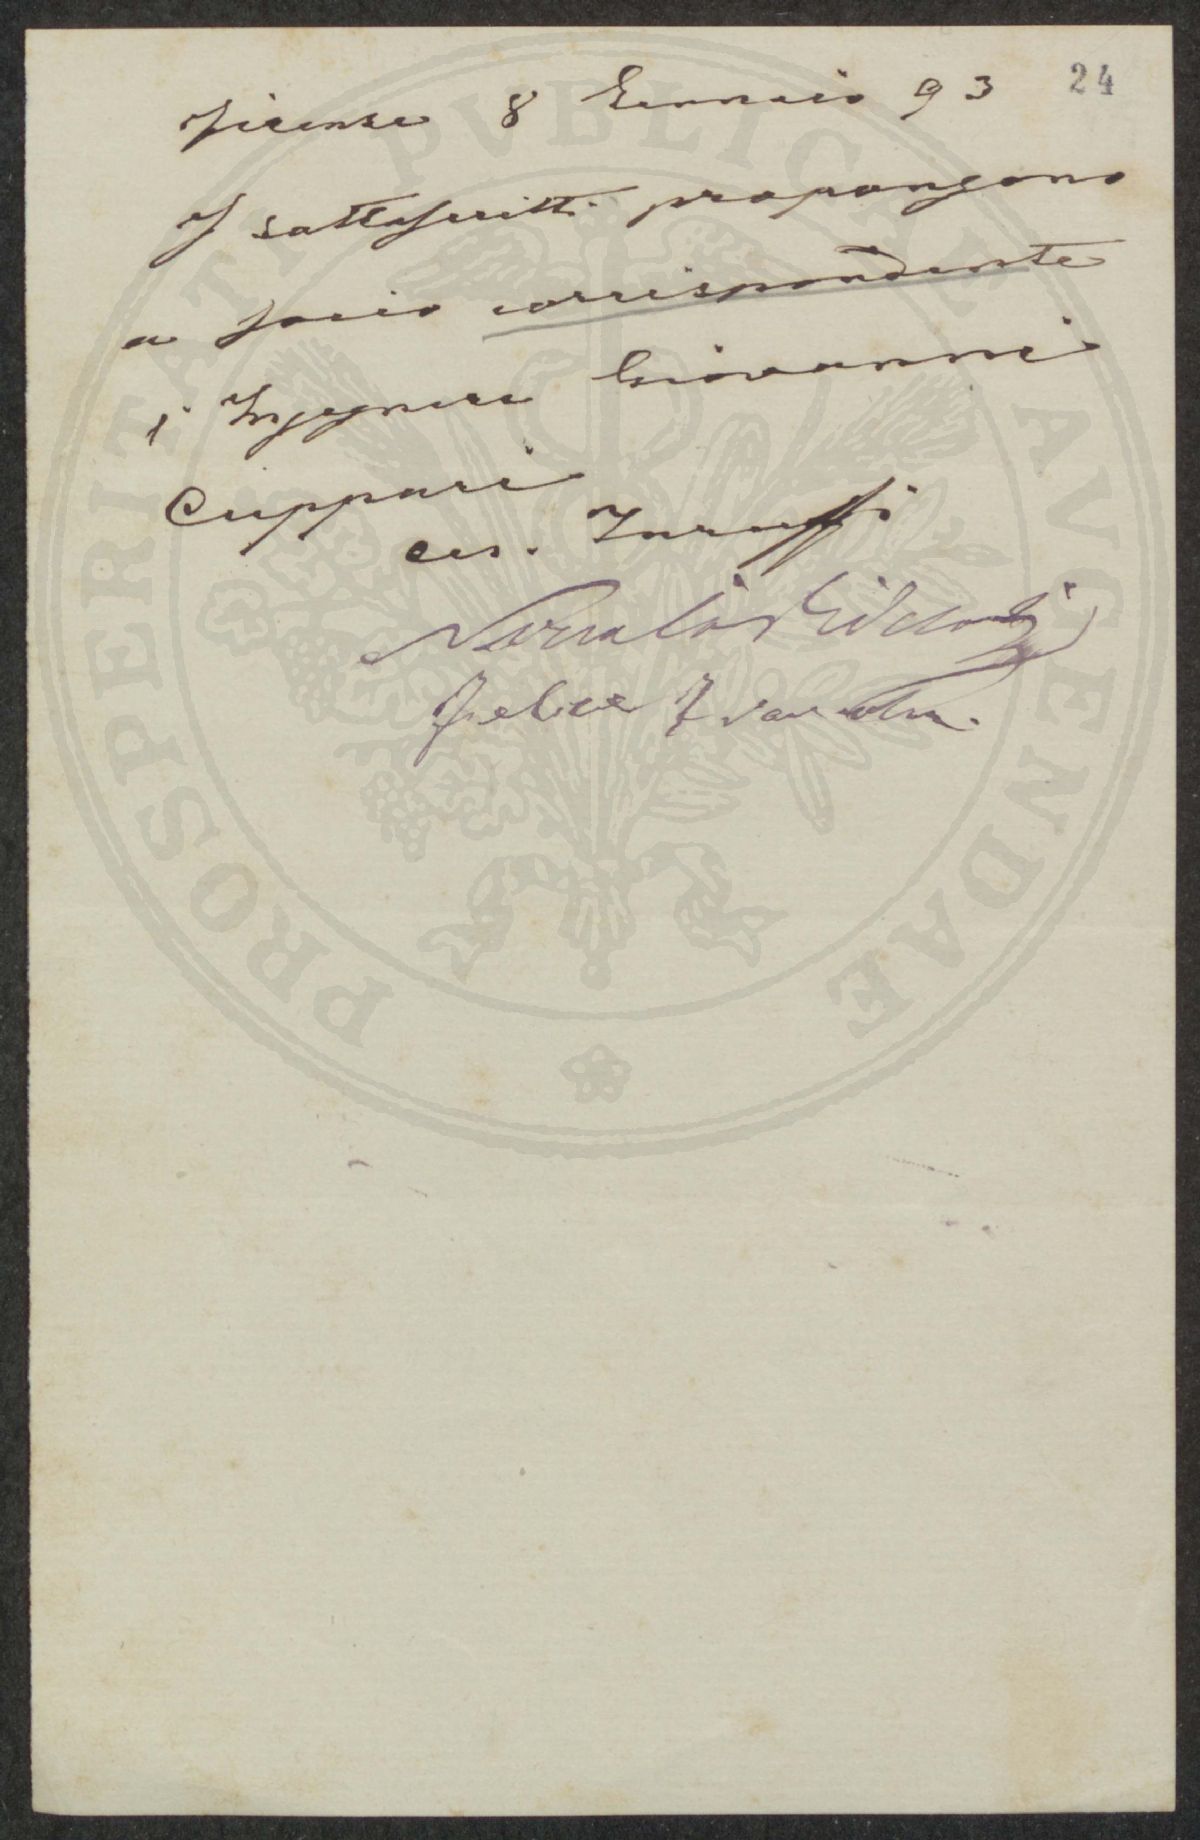 24
Firenze 8 Gennaio 93
I sottoscritti propongono
a socio corrispondente
l' Ingegnere Giovanni
Cuppari
Ces. Taruffi
Niccolò Ridolfi
Felice Francolini
PROSPERITATI PVBLICAE AVGENDAE